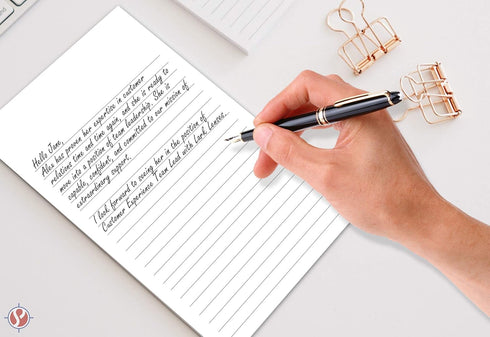 Hello Jane,
Alex has proven her expertise in customer
relations time and time again, and she is ready to
move into a position of team leadership. She is
capable, confident, and committed to our mission of
extraordinary support.
I look forward to seeing her in the position of
Customer Experience Team Lead with Card, Lensea...